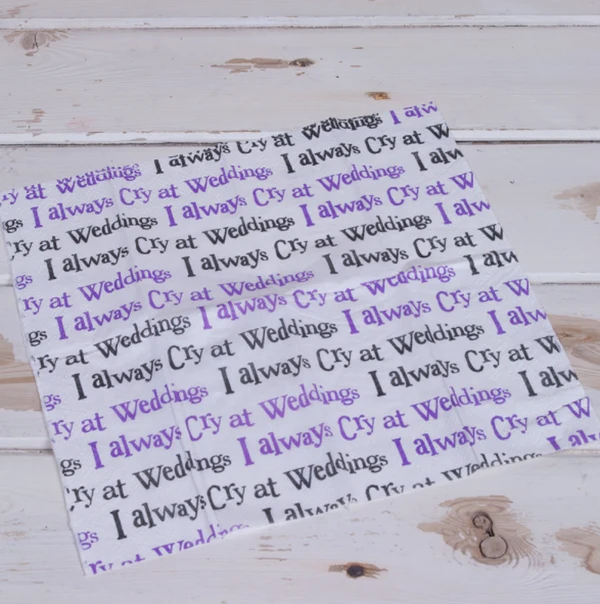 ry at Weddings I always Cry at Weddings I alw
gs I always Cry at Weddings I always Cry at W
ry at Weddings I always Cry at Weddings I alw
gs I always Cry at Weddings I always Cry at W
ry at Weddings I always Cry at Weddings I alw
gs I always Cry at Weddings I always Cry at W
ry at Weddings I always Cry at Weddings I alw
gs I always Cry at Weddings I always Cry at W
ry at Weddings I always Cry at Weddings I alw
gs I always Cry at Weddings I always Cry at W
ry at Weddings I always Cry at Weddings I alw
gs I always Cry at Weddings I always Cry at W
ry at Weddings I always Cry at Weddings I al